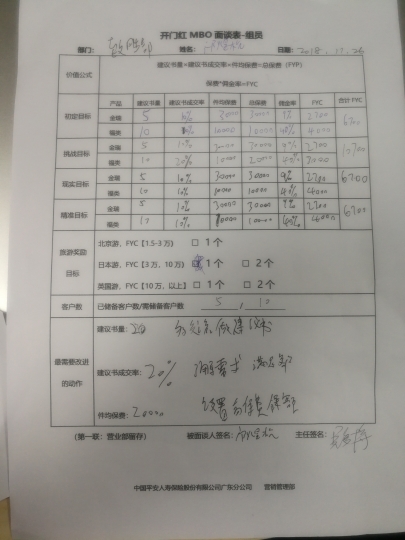 开门红 MBO 面谈表-组员
部门： 姓名： 日期：2018.11.26
价值公式
建议书量*建议书成交率*件均保费=总保费（FYP）
保费*佣金率=FYC
产品 建议书量 建议书成交率 件均保费 总保费 佣金率 FYC 合计 FYC
初定目标
金瑞 5 10% 30000 30000 9% 2700 6700
福类 10 10% 10000 10000 40% 4000
挑战目标
金瑞 5 30000 9% 2700 10700
福类 10 20% 10000 20000 40% 8000
现实目标
金瑞 5 10% 30000 30000 9% 2700 6700
福类 10 10% 10000 10000 40% 4000
精准目标
金瑞 5 10% 30000 30000 9% 2700 6700
福类 10 10% 10000 10000 40% 4000
旅游奖励
目标
北京游、FYC【1.5-3 万】 □ 1 个
日本游、FYC【3 万，10 万】 □ 1 个 □ 2 个
英国游、FYC【10 万，以上】 □ 1 个 □ 2 个
客户数 已储备客户数/需储备客户数 5 / 10
最需要改进
的动作
建议书量：
建议书成交率：20% 需求
件均保费：20000 设置 保费
(第一联：营业部留存) 被面谈人签名： 主任签名：
中国平安人寿保险股份有限公司广东分公司 营销管理部